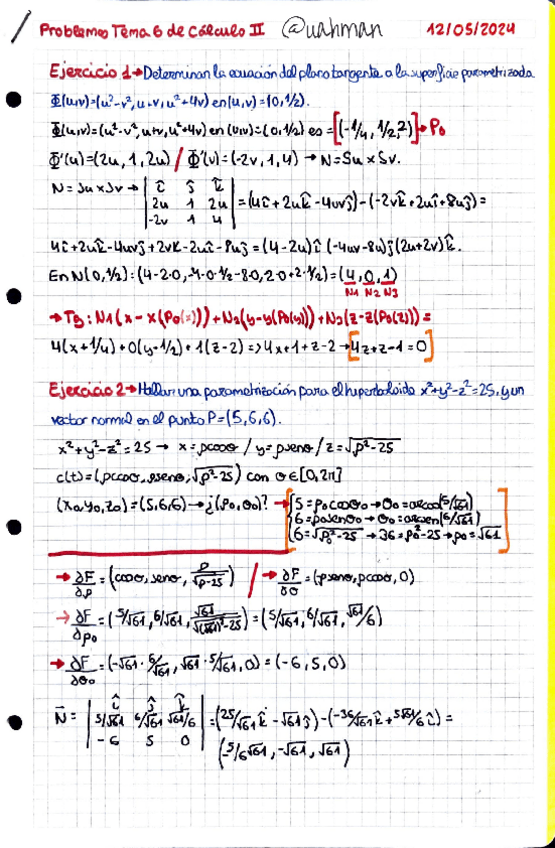 Problemas Tema 6 de Cálculo II @uahman 12/05/2024
Ejercicio 1 → Determinar la ecuación del plano tangente a la superficie parametrizada
Φ(u,v)=(u²-v², u+v, u²+4v) en (u,v)=(0,1/2).
Φ(u,v)=(u²-v², u+v, u²+4v) en (u,v)=(0,1/2) es = [(-1/4, 1/2, 2)] → P₀
Φ'(u)=(2u, 1, 2u) / Φ'(v)=(-2v, 1, 4) → N=Su x Sv.
N = Su x Sv → | î ĵ k̂ |
| 2u 1 2u | = (4î+2uk̂-4uvĵ)-(-2vk̂+2uî+8uĵ) =
| -2v 1 4 |
4î+2uk̂-4uvĵ+2vk̂-2uî-8uĵ = (4-2u)î (-4uv-8u)ĵ (2u+2v)k̂.
En N(0,1/2) = (4-2·0, -4·0·1/2-8·0, 2·0+2·1/2) = (4, 0, 1)
N1 N2 N3
→ Tg: N1(x-x(P₀(x))) + N2(y-y(P₀(y))) + N3(z-z(P₀(z))) =
4(x+1/4)+0(y-1/2)+1(z-2) => 4x+1+z-2 → [4z+z-1=0]
Ejercicio 2 → Hallar una parametrización para el hiperboloide x²+y²-z²=25, y un
vector normal en el punto P=(5,6,6).
x²+y²-z²=25 → x=ρcosθ / y=ρsenθ / z=√ρ²-25
c(t)=(ρcosθ, ρsenθ, √ρ²-25) con θ∈[0,2π]
(x₀,y₀,z₀)=(5,6,6) → ¿(ρ₀,θ₀)? → { 5=ρ₀cosθ₀ → θ₀=arcos(5/√61)
6=ρ₀senθ₀ → θ₀=arcsen(6/√61)
6=√ρ₀²-25 → 36=ρ₀²-25 → ρ₀=√61
→ ∂F/∂ρ = (cosθ, senθ, ρ/√ρ-25) / → ∂F/∂θ = (-ρsenθ, ρcosθ, 0)
→ ∂F/∂ρ₀ = (5/√61, 6/√61, √61/√(√61)²-25) = (5/√61, 6/√61, √61/6)
→ ∂F/∂θ₀ = (-√61·6/√61, √61·5/√61, 0) = (-6, 5, 0)
N̄ = | î ĵ k̂ |
| 5/√61 6/√61 √61/6 | = (25/√61 k̂ - √61 ĵ) - (-36/√61 k̂ + 5√61/6 î) =
| -6 5 0 |
(-5/6√61, -√61, √61)